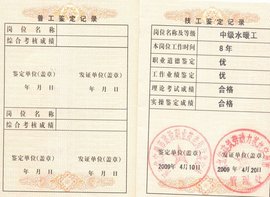 普工鉴定记录
岗位名称
综合考核成绩
鉴定单位(盖章) 发证单位(盖章)
年 月 日 年 月 日
岗位名称
综合考核成绩
鉴定单位(盖章) 发证单位(盖章)
年 月 日 年 月 日
技工鉴定记录
岗位名称及等级 中级水暖工
本岗位工作时间 8年
职业道德鉴定 优
工作业绩鉴定 优
理论考试成绩 合格
实操鉴定成绩 合格
鉴定单位(盖章) 发证单位(盖章)
2009 年 4月10日 2009 年 4月20日